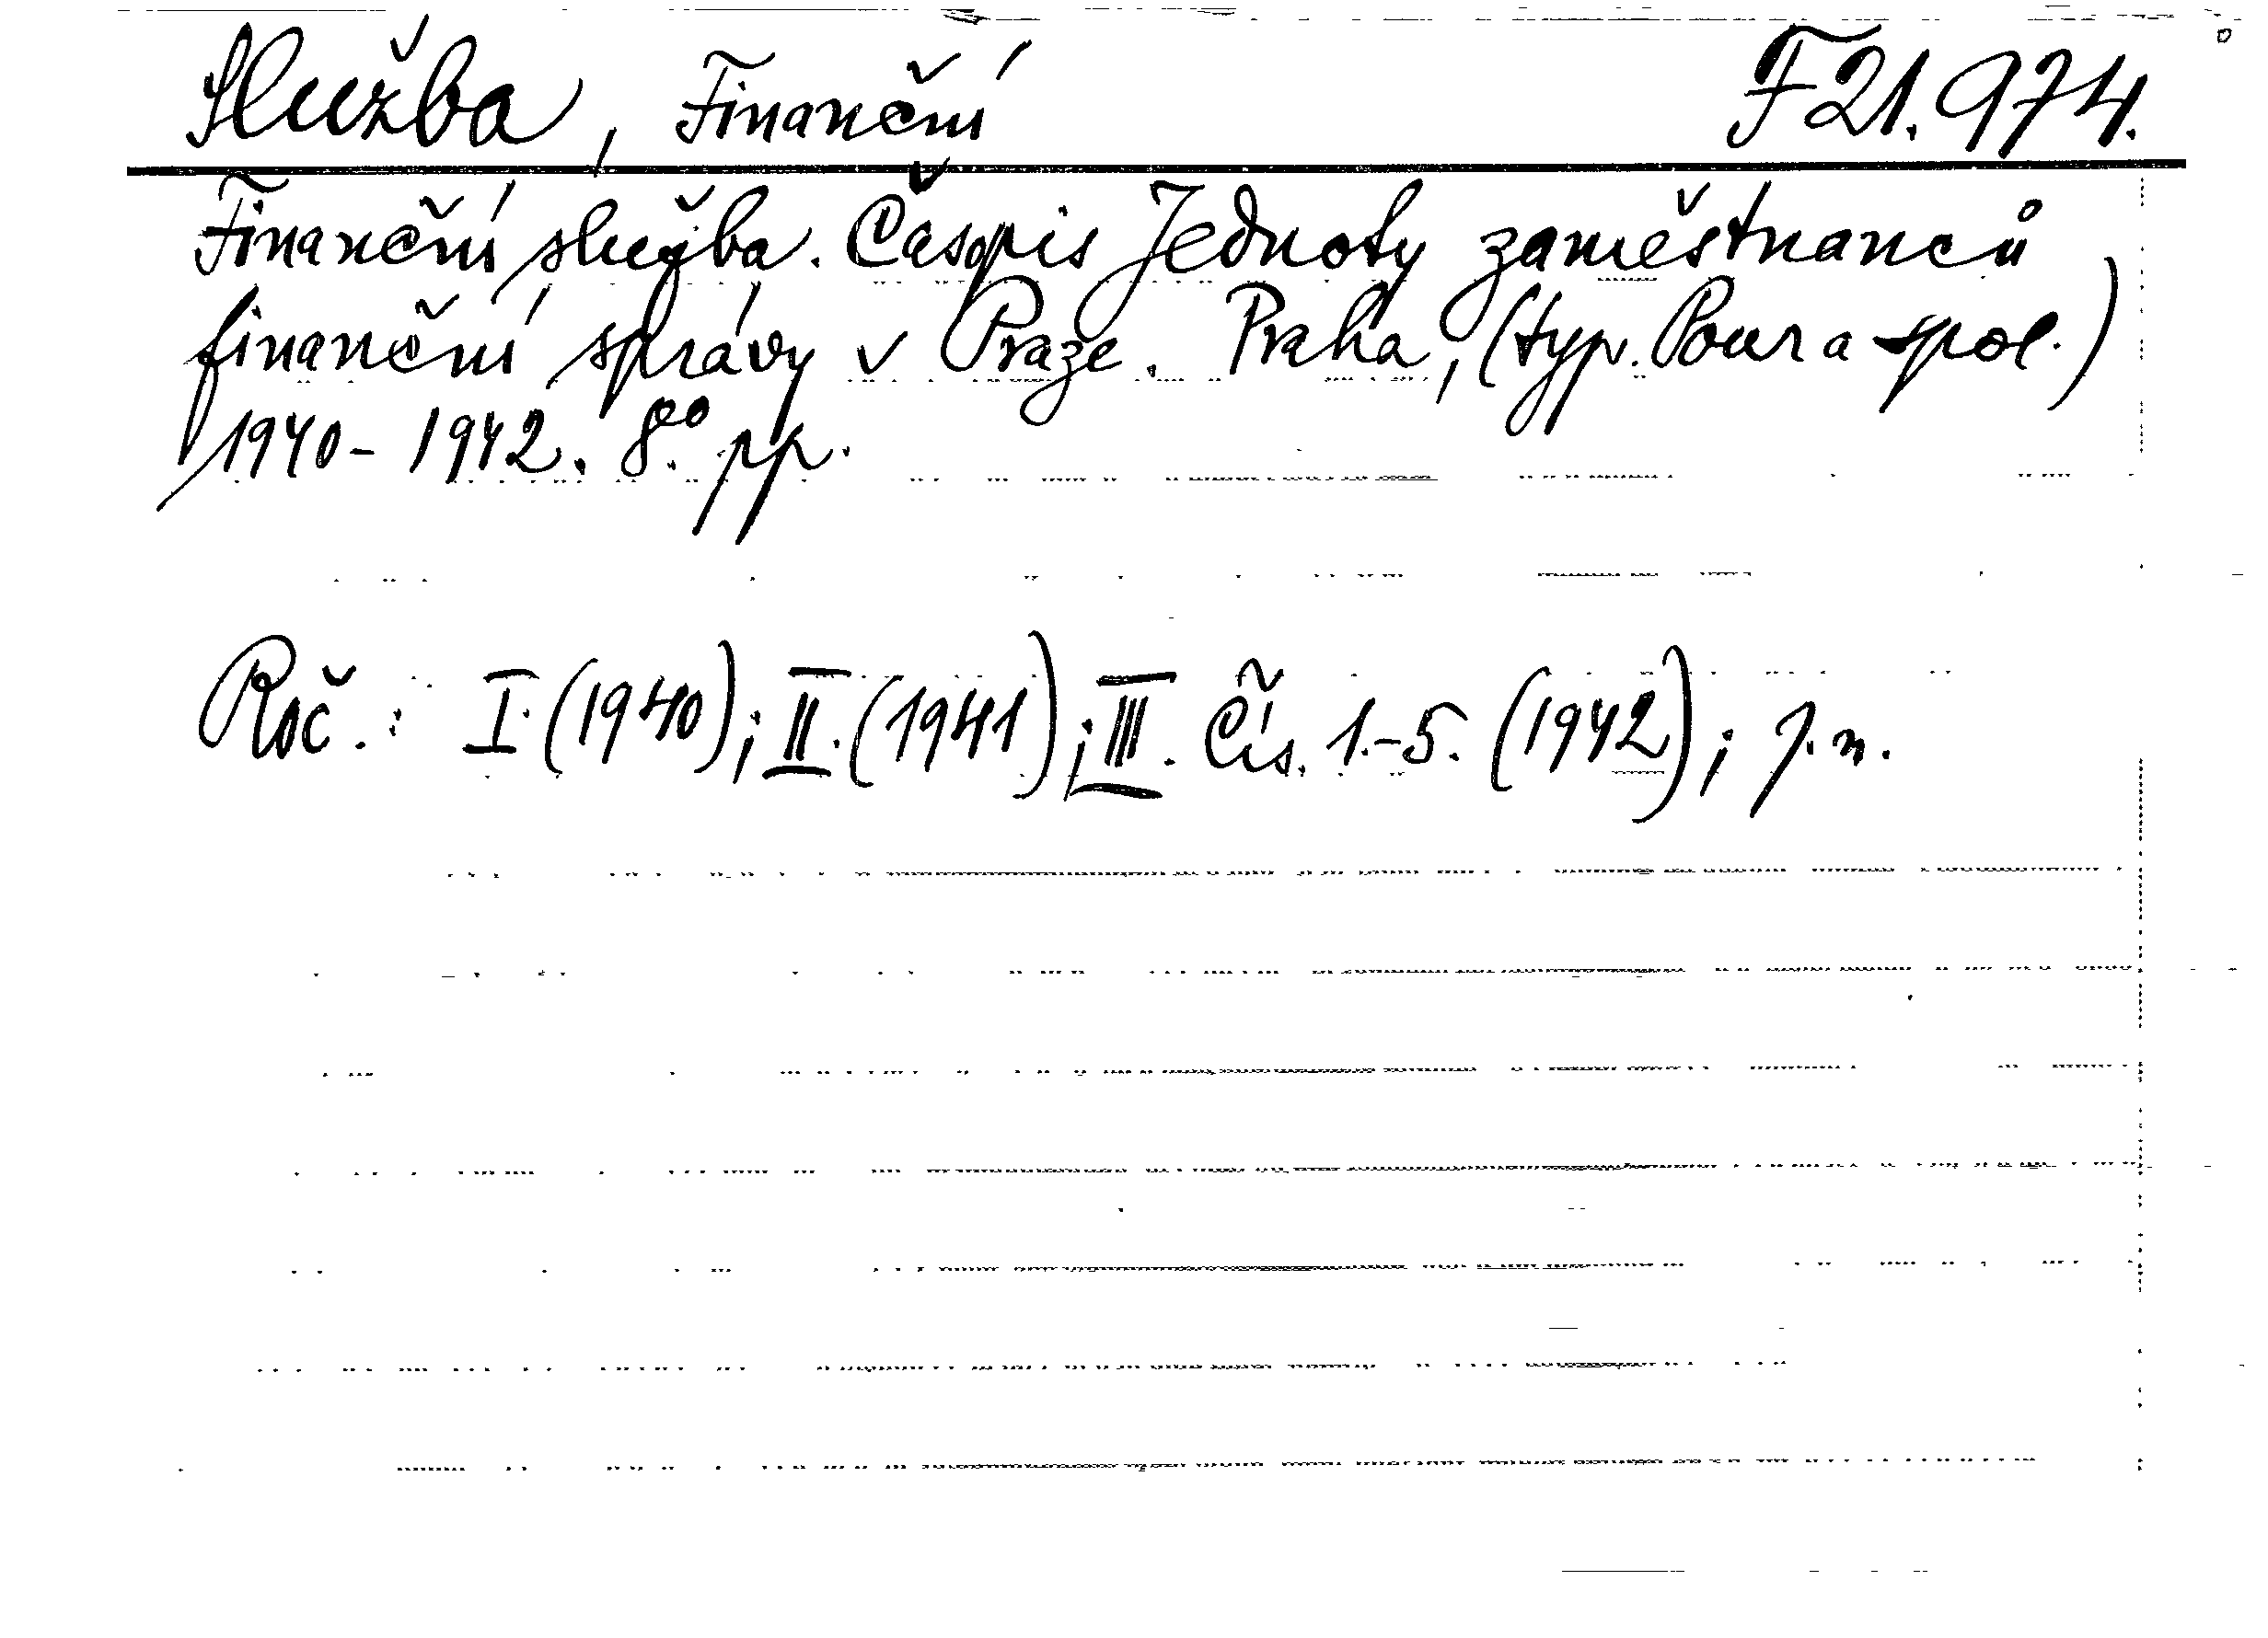 Služba, Finanční F 21.974.
Finanční služba. Časopis Jednoty zaměstnanců
finanční správy v Praze. Praha, (typ. Pour a spol.)
1940-1942. 8° pp.
Roč.: I. (1940); II. (1941); III. Čís. 1.-5. (1942); J. n.